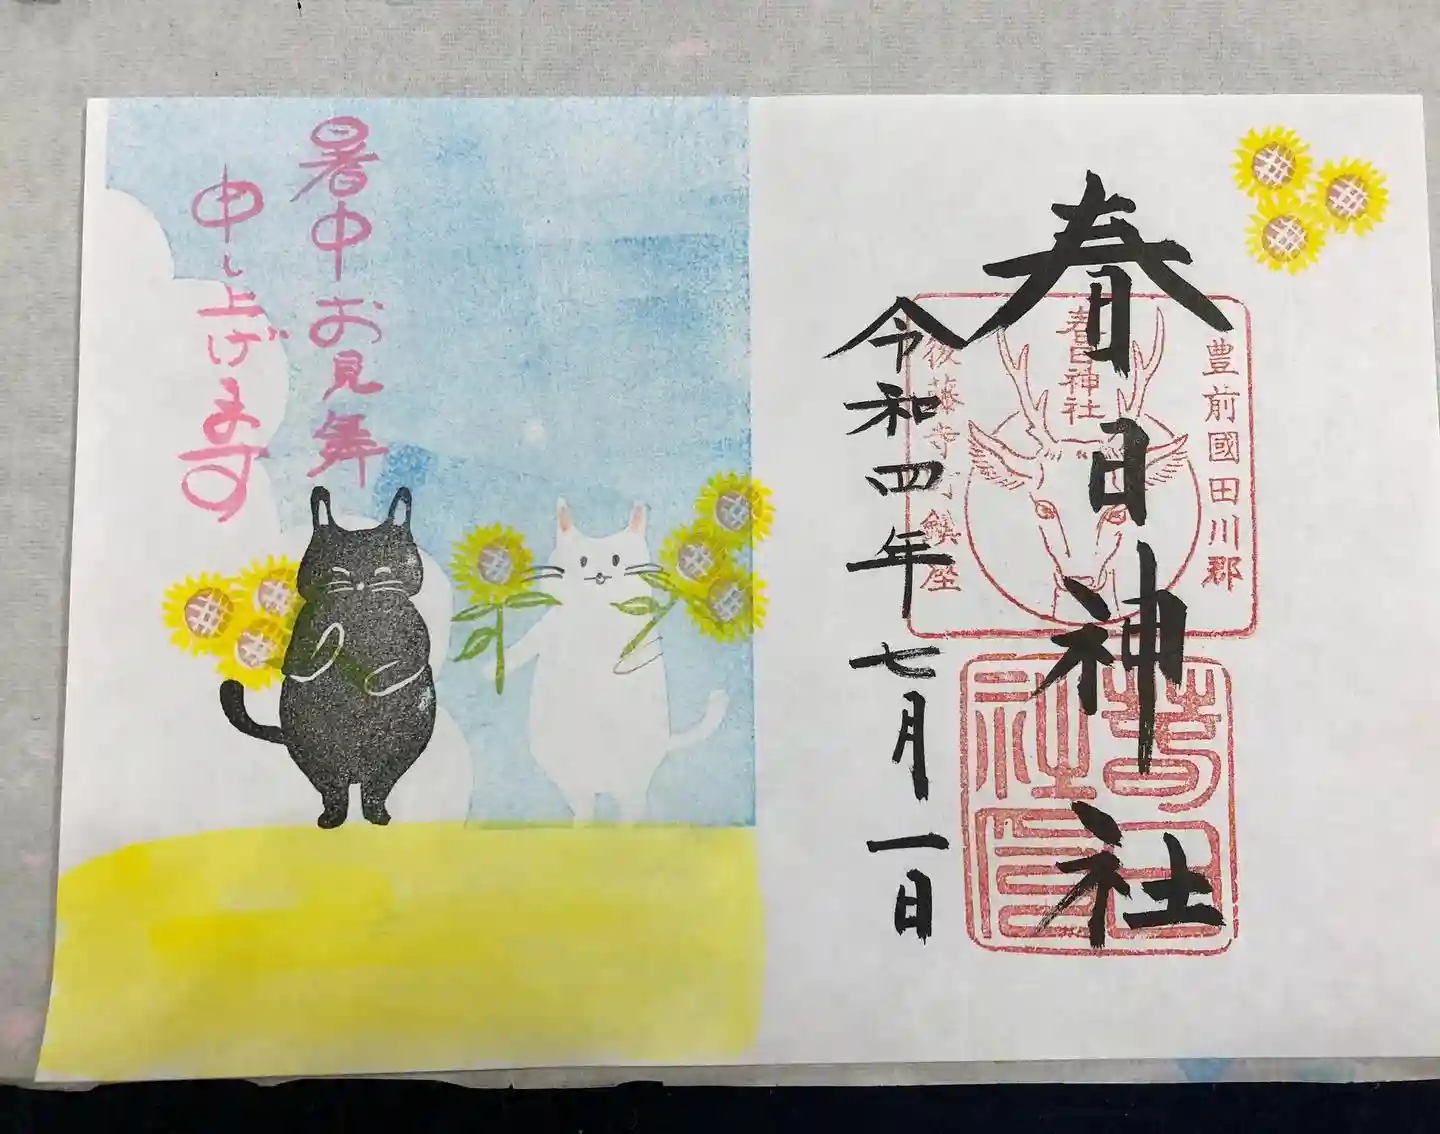 春日神社
令和四年七月一日
豊前國田川郡
春日神社
後藤寺町鎮座
暑中お見舞
申し上げます